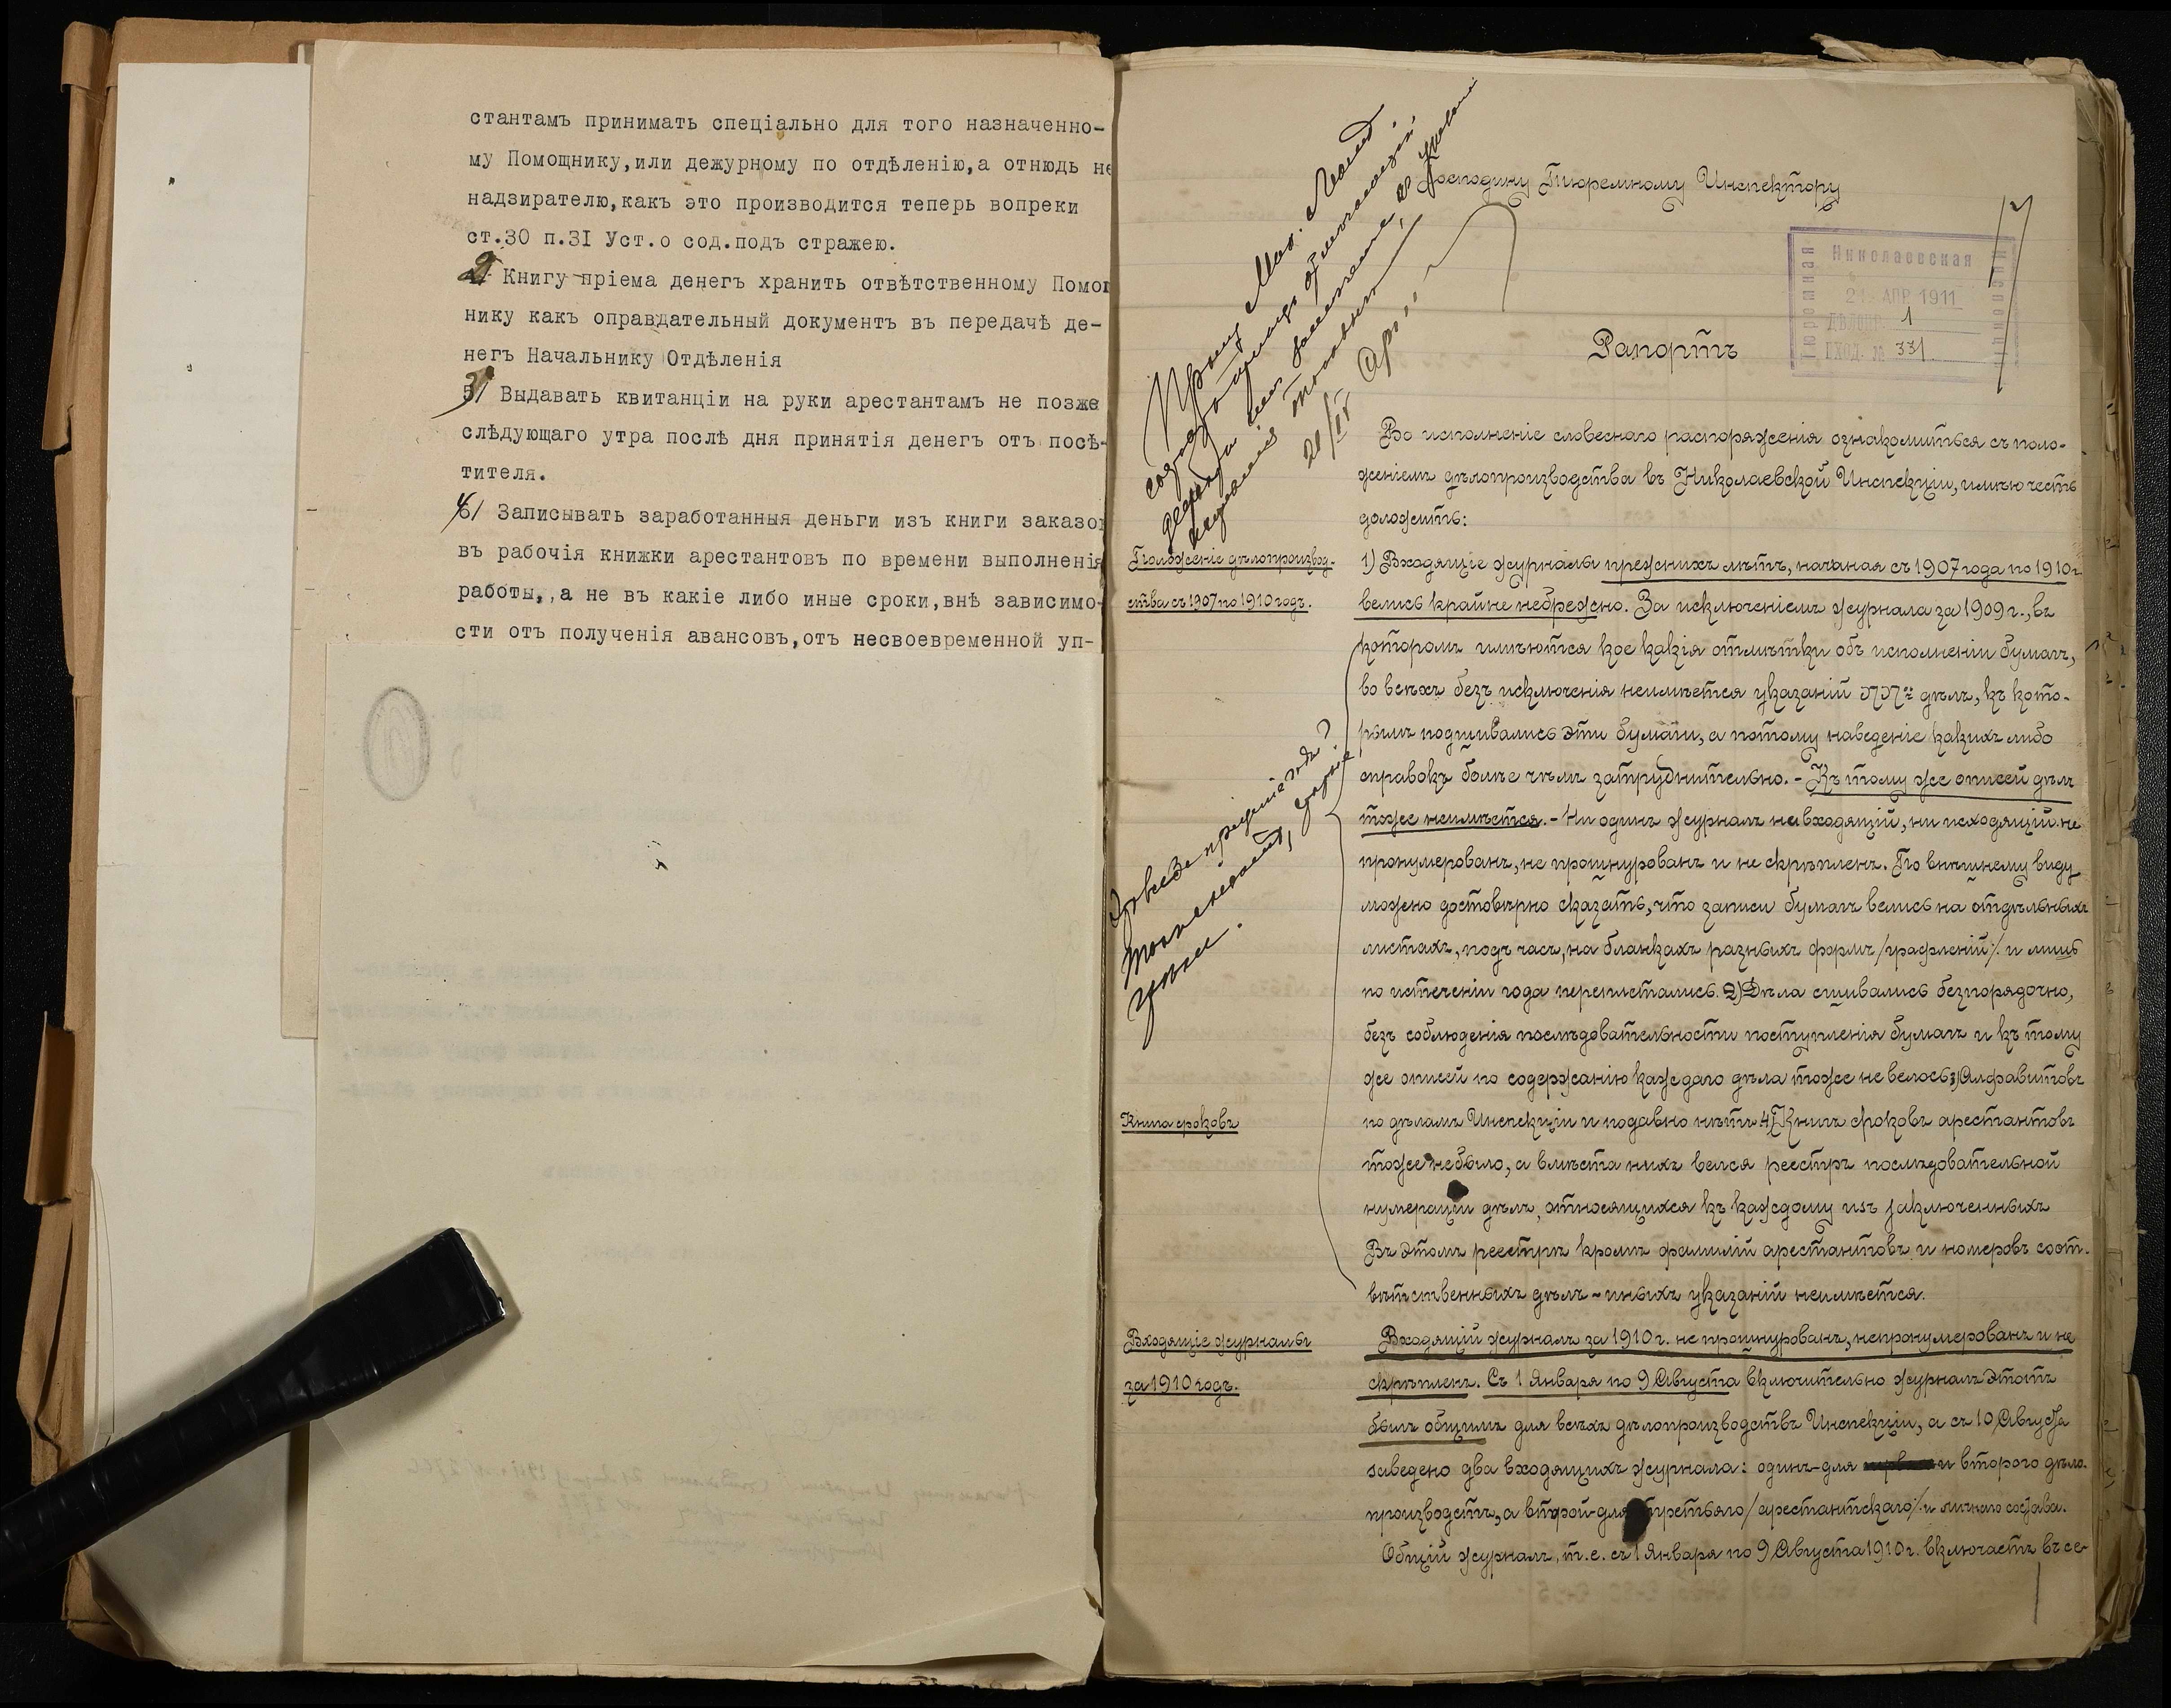 стантамъ принимать спеціально для того назначенно-
му Помощнику,или дежурному по отдѣленію,а отнюдь не
надзирателю,какъ это производится теперь вопреки
ст.30 п.31 Уст.о сод.подъ стражею.
2/ Книгу пріема денегъ хранить отвѣтственному Помощ
нику какъ оправдательный документъ въ передачѣ де-
негъ Начальнику Отдѣленія
3/ Выдавать квитанціи на руки арестантамъ не позже
слѣдующаго утра послѣ дня принятія денегъ отъ посѣ-
тителя.
4/ Записывать заработанныя деньги изъ книги заказо
въ рабочія книжки арестантовъ по времени выполненія
работы,,а не въ какіе либо иные сроки,внѣ зависимо-
сти отъ полученія авансовъ,отъ несвоевременной уп-
Господину Тюремному Инспектору
Николаевская
Тюремная
21 АПР 1911
1
ВХОД. № 331
Рапортъ
Прошу
21/IV
Во исполненіе словеснаго распоряженія ознакомиться съ поло-
женіемъ дѣлопроизводства въ Николаевской Инспекціи, имѣю честь
доложить:
Положеніе дѣлопроизвод-
ства съ 1907 по 1910 годъ.
1) Входящіе журналы прежнихъ лѣтъ, начиная съ 1907 года по 1910 г.
велись крайне небрежно. За исключеніемъ журнала за 1909 г., въ
которомъ имѣются кое какія отмѣтки объ исполненіи бумагъ,
во всѣхъ безъ исключенія неимѣется указаній №№ дѣлъ, къ кото-
рымъ подшивались эти бумаги, а потому наведеніе какихъ либо
справокъ болѣе чѣмъ затруднительно. - Къ тому же описей дѣлъ
тоже неимѣется. - Ни одинъ журналъ ни входящій, ни исходящій не
пронумерованъ, не прошнурованъ и не скрѣпленъ. По внѣшнему виду
можно достовѣрно сказать, что записи бумагъ велись на отдѣльныхъ
листахъ, подъ часъ, на бланкахъ разныхъ формъ /графленій/. и лишь
по истеченіи года переплетались. 2) Дѣла сшивались безпорядочно,
безъ соблюденія послѣдовательности поступленія бумагъ и къ тому
же описей по содержанію каждаго дѣла тоже не велось 3) Алфавитовъ
Книга сроковъ
по дѣламъ Инспекціи и подавно нѣтъ 4) Книгъ сроковъ арестантовъ
тоже небыло, а вмѣста нихъ велся реестръ послѣдовательной
нумераціи дѣлъ, относящихся къ каждому изъ заключенныхъ
Въ этомъ реестрѣ кромѣ фамилій арестантовъ и номеровъ соот-
вѣтственныхъ дѣлъ - иныхъ указаній неимѣется.
Входящіе журналы
за 1910 годъ.
Входящій журналъ за 1910 г. не прошнурованъ, непронумерованъ и не
скрѣпленъ. Съ 1 Января по 9 Августа включительно журналъ этотъ
былъ общимъ для всѣхъ дѣлопроизводствъ Инспекціи, а съ 10 Августа
заведено два входящихъ журнала: одинъ - для и второго дѣло-
производствъ, а второй - для третьяго /арестантскаго/. и личнаго состава.
Общій журналъ, т.е. съ 1 Января по 9 Августа 1910 г. включаетъ въ се-